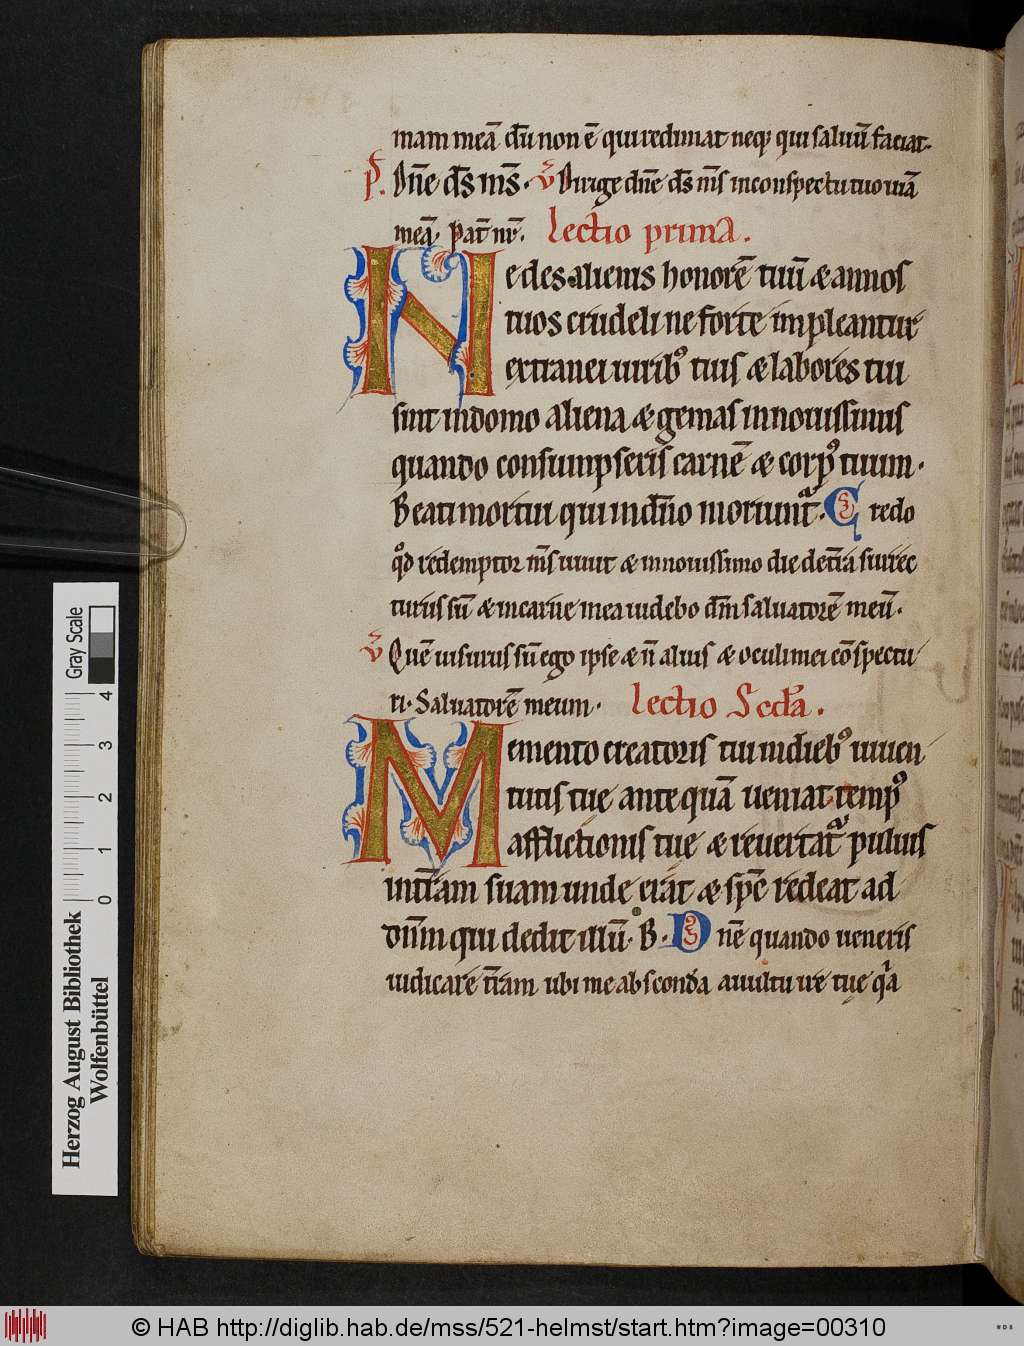 mam meā dū non ē qui redimat neq; qui saluū faciat.
P. Dn̄e ds̄ ms̄. v̄ Dirige dn̄e ds̄ ms̄ in conspectu tuo uiā
meā. pat̄ nr̄. lectio prima.
Ne des alienis honorē tuū & annos
tuos crudeli ne forte impleantur
extranei uirib᾽ tuis & labores tui
sint in domo aliena & gemas in nouissimis
quando consumpseris carnē & corp᾽ tuum.
Beati mortui qui in dn̄o moriunt᾽. Credo
qd̄ redemptor ms̄ uiuit & in nouissimo die de t̄ra surrec
turus sū & in carne mea uidebo dm̄ saluatorē meū.
v̄ Quē uisurus sū ego ipse & n̄ alius & oculi mei cōspectu
ri. Saluatorē meum. lectio Scd̄a.
Memento creatoris tui in dieb᾽ iuuen
tutis tue ante quā ueniat temp᾽
afflictionis tue & reuertat᾽ puluis
in t̄ram suam unde erat & spc̄ redeat ad
dn̄m qui dedit illū. B. Dn̄e quando ueneris
iudicare t̄ram ubi me abscondā a uultu ire tue qa
Herzog August Bibliothek
Wolfenbüttel
0 1 2 3 4 Gray Scale
© HAB http://diglib.hab.de/mss/521-helmst/start.htm?image=00310